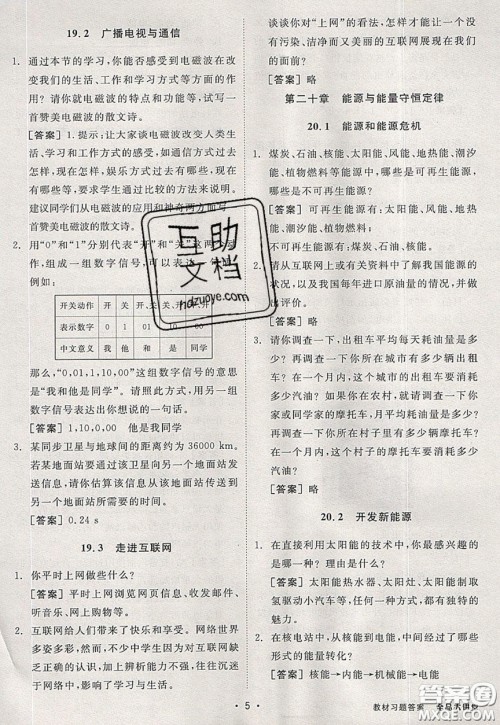 19.2 广播电视与通信
1. 通过本节的学习,你能否感受到电磁波在改
变我们的生活、工作和学习方式等方面的作
用? 请你就电磁波的特点和功能等,试写一
首赞美电磁波的散文诗。
[答案] 1. 提示:让大家谈电磁波改变人类生
活、学习和工作方式的感受,如通信方式过去
怎样、现在怎样,娱乐方式过去怎样、现在怎
样,出行方式等方面的比较方法来说明。
建议同学们从电磁波的应用和神奇两方面写一
首赞美电磁波的散文诗。
2. 用“0”和“1”分别代表“开”和“关”这两个动
作,组合成一组数字信号,可以表达一
例如:
开关动作 开 关 关、开
表示数字 0 1 01 10 00
中文意义 我 他 和 是 同学
那么,“0,01,1,10,00”这组数字信号的意思
是“我和他是同学”。请照此方式,用另一组
数字信号表达出你想说的一句话。
[答案] 1,10,0,00 他是我同学
3. 某同步卫星与地球间的距离约为 36000 km。
若某地面站通过该卫星向另一个地面站
发送信息,请你估算该信息由地面站传到
另一个地面站所需要的时间。
[答案] 0.24 s
19.3 走进互联网
1. 你平时上网做些什么?
[答案] 平时上网浏览网页信息、收发邮件、
听音乐、网上交友、玩游戏等。
2. 互联网给人们带来了快乐和享受。网络世界
多姿多彩,而不少中学生因为对互联网缺乏
正确的认识,加上辨析能力不强,或迷恋于网
络游戏,影响了身心健康和学习。请你
谈谈你对“上网”的看法,怎样才能让一个没
有污染、洁净而又美丽的互联网展现在我们
面前?
[答案] 略
第二十章 能源与能量守恒定律
20.1 能源和能源危机
1. 煤炭、石油、核能、太阳能、风能、地热能、潮汐
能、植物燃料等能源中,哪些是可再生能源?
哪些是不可再生能源?
[答案] 可再生能源有:太阳能、风能、地热
能、潮汐能、植物燃料;
不可再生能源有:煤炭、石油、核能。
2. 请从互联网上或有关资料中了解我国能源的
状况,以及我国进口原油量的情况,并
作出评价。
[答案] 略
3. 请你调查一下,出租车平均每天耗油量是多
少? 再调查一下你所在居住的城市有多少辆出
租车? 在一个月内,这个城市的出租车要消
耗多少汽油? 如果你在农村,就调查一下
摩托车,月平均耗油量是多少?
再调查一下,你所在村子里有多少辆摩托车?
在一个月内,你所在村子的摩托车要消耗多少
汽油?
[答案] 略
20.2 开发新能源
1. 在直接利用太阳能的技术中,你最感兴趣的
是哪一种? 理由是什么?
[答案] 太阳能热水器、太阳灶、太阳能制取
氢驱动小汽车等,任选其一,有道理即可。
2. 在核电站中,从核能到电能,要经历哪些形式
的能量转化?
[答案] 核能→内能→机械能→电能
互助文档
hdzuoye.com
· 5 ·
教材习题答案
全品大讲堂
MXQE.COM